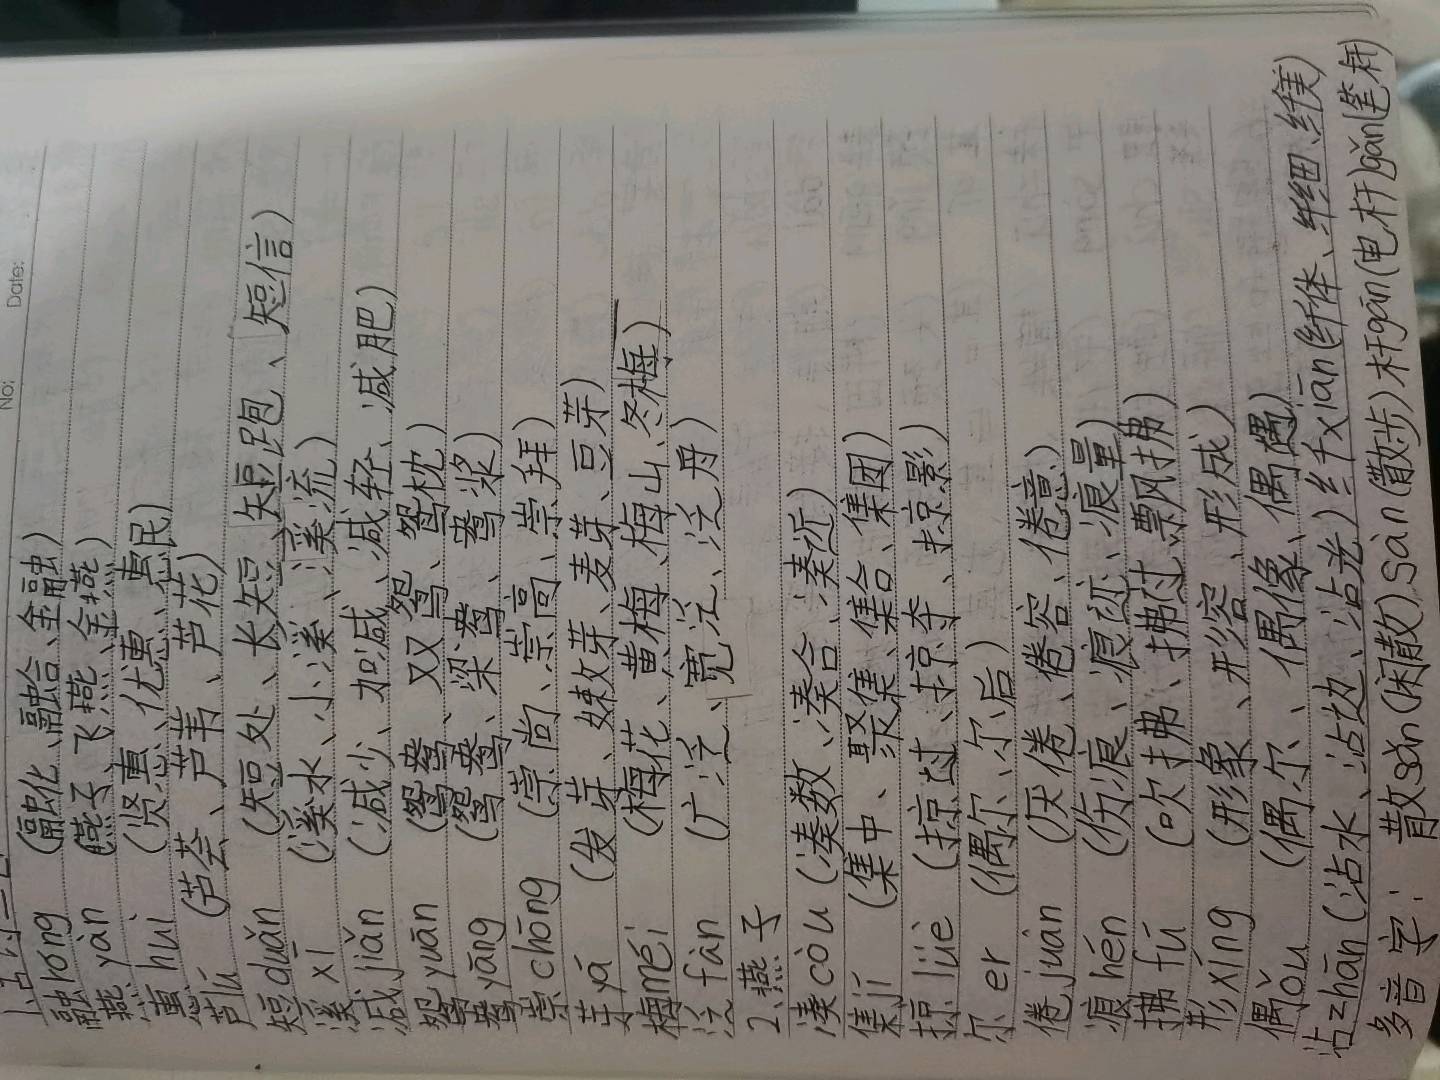 No: Date:
1.古诗三首
融róng (融化、融合、金融)
燕yàn (燕子、飞燕、金燕)
惠huì (贤惠、优惠、惠民)
芦lú (芦荟、芦苇、芦花)
短duǎn (短处、长短、短跑、短信)
溪xī (溪水、小溪、溪流)
减jiǎn (减少、加减、减轻、减肥)
鸳yuān (鸳鸯、双鸳、鸳枕)
鸯yāng (鸳鸯、梁鸯、鸯浆)
崇chōng (崇尚、崇高、崇拜)
芽yá (发芽、嫩芽、麦芽、豆芽)
梅méi (梅花、黄梅、梅山、冬梅)
泛fàn (广泛、宽泛、泛舟)
2.燕子
凑còu (凑数、凑合、凑近)
集jí (集中、聚集、集合、集团)
掠lüè (掠过、掠夺、掠影)
尔er (偶尔、尔后)
倦juàn (厌倦、倦容、倦意)
痕hén (伤痕、痕迹、痕量)
拂fú (吹拂、拂过、飘拂)
形xíng (形象、形容、形成)
偶ǒu (偶尔、偶像、偶遇)
沾zhān (沾水、沾边、沾光) 纤xiān (纤体、纤细、纤维)
多音字: 散sǎn (闲散) sàn (散步) 杆gān (电杆) gǎn (笔杆)